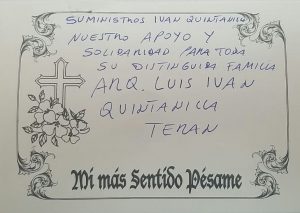 SUMINISTROS IVAN QUINTANILLA
NUESTRO APOYO Y
SOLIDARIDAD PARA TODA
SU DISTINGUIDA FAMILIA
ARQ. LUIS IVAN
QUINTANILLA
TERAN
Mi más Sentido Pésame